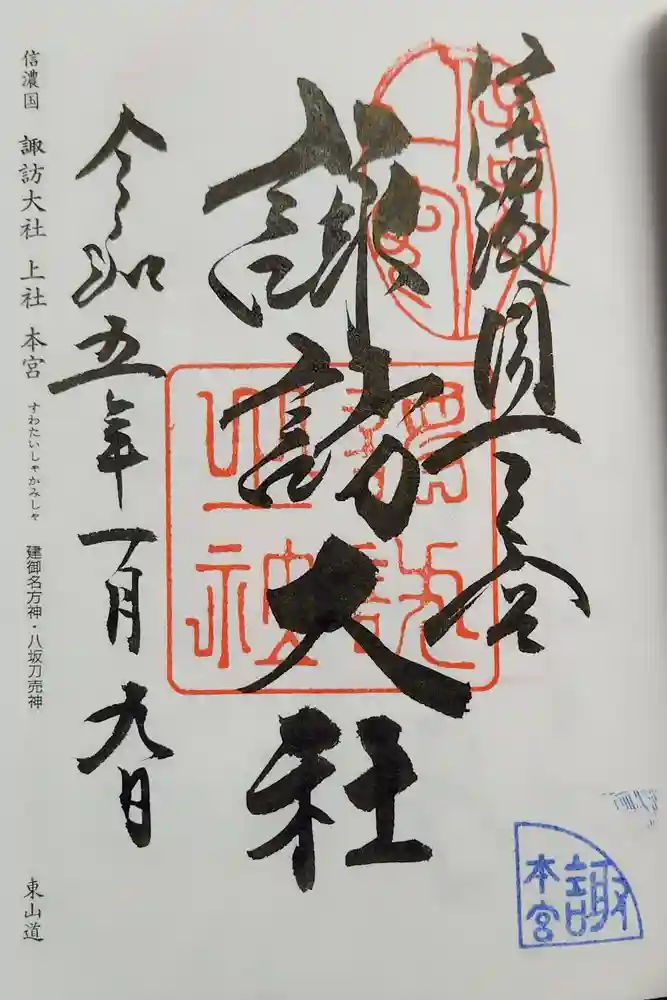 信濃国一之宮
諏訪大社
令和五年一月九日
信濃国 諏訪大社 上社 本宮 すわたいしゃかみしゃ 建御名方神・八坂刀売神 東山道
諏
本宮